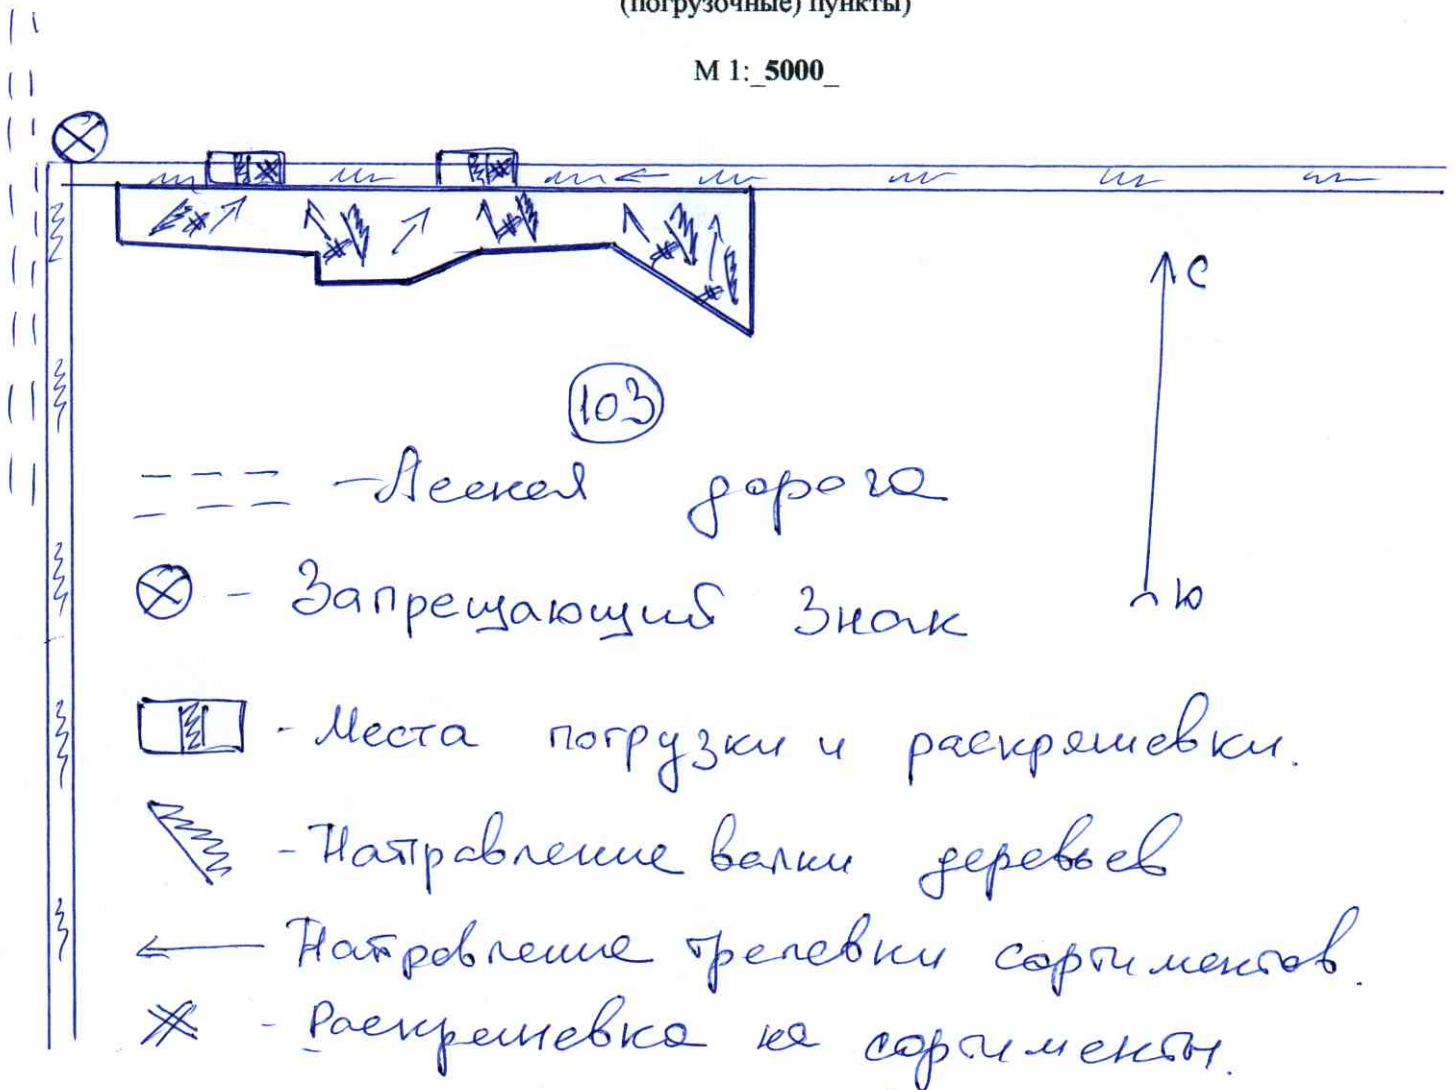 (погрузочные) пункты)
М 1:_5000_
С
103
- Лесная дорога
Ю
- Запрещающий знак
- Места погрузки и раскряжевки.
- Направление валки деревьев
Направление трелевки сортиментов.
- Раскряжевка на сортименты.